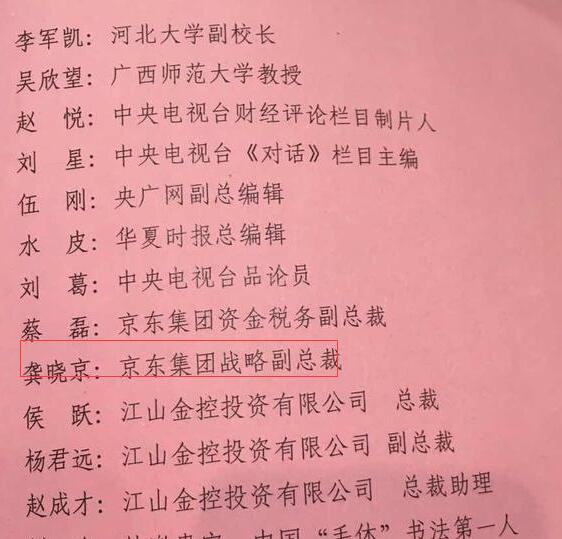 李军凯：河北大学副校长
吴欣望：广西师范大学教授
赵　悦：中央电视台财经评论栏目制片人
刘　星：中央电视台《对话》栏目主编
伍　刚：央广网副总编辑
水　皮：华夏时报总编辑
刘　葛：中央电视台品论员
蔡　磊：京东集团资金税务副总裁
龚晓京：京东集团战略副总裁
侯　跃：江山金控投资有限公司　总裁
杨君远：江山金控投资有限公司　副总裁
赵成才：江山金控投资有限公司　总裁助理
中国“毛体”书法第一人